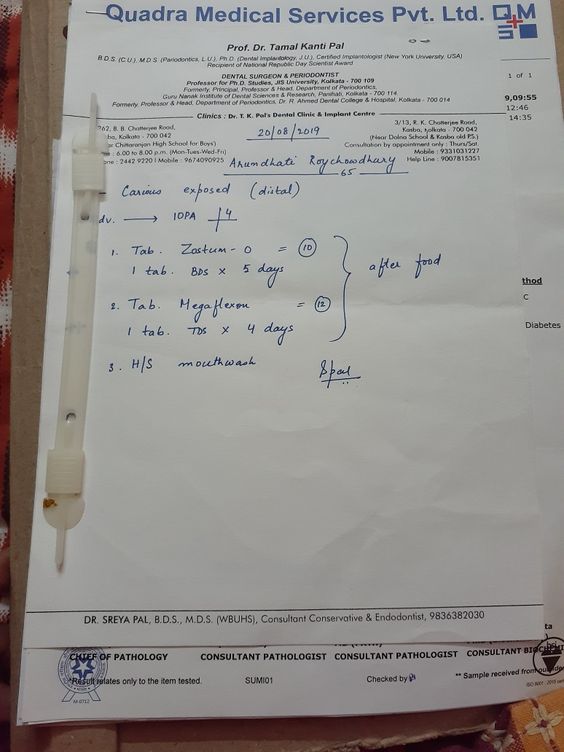 Quadra Medical Services Pvt. Ltd.
Prof. Dr. Tamal Kanti Pal
B.D.S. (C.U.), M.D.S. (Periodontics, L.U.), Ph.D. (Dental Implantology, J.U.), Certified Implantologist (New York University, USA)
Recipient of National Republic Day Scientist Award
DENTAL SURGEON & PERIODONTIST
Professor for Ph.D. Studies, JIS University, Kolkata - 700 109
Formerly, Principal, Professor & Head, Department of Periodontics,
Guru Nanak Institute of Dental Sciences & Research, Panihati, Kolkata - 700 114
Formerly, Professor & Head, Department of Periodontics, Dr. R. Ahmed Dental College & Hospital, Kolkata - 700 014
1 of 1
9,09:55
12:46
14:35
Clinics : Dr. T. K. Pal's Dental Clinic & Implant Centre
262, B. B. Chatterjee Road,
Kolkata - 700 042
Chittaranjan High School for Boys)
: 6.00 to 8.00 p.m. (Mon-Tues-Wed-Fri)
: 2442 9220 | Mobile : 9674090925
20/08/2019
3/13, R. K. Chatterjee Road,
Kasba, Kolkata - 700 042
(Near Dolna School & Kasba old P.S.)
Consultation by appointment only : Thurs/Sat.
Mobile : 9331031227
Help Line : 9007815351
Arundhati Roychowdhury
65
Carious exposed (distal)
dv. → IOPA 4
1. Tab. Zostum-O = 10
1 tab. BDS x 5 days
2. Tab. Megaflexon = 12
1 tab. TDS x 4 days
after food
3. H/S mouthwash
Spal
thod
C
Diabetes
DR. SREYA PAL, B.D.S., M.D.S. (WBUHS), Consultant Conservative & Endodontist, 9836382030
ta
CHIEF OF PATHOLOGY CONSULTANT PATHOLOGIST CONSULTANT PATHOLOGIST CONSULTANT BIOCHEMI
*Result relates only to the item tested. SUMI01 Checked by ** Sample received from outside
M-0712